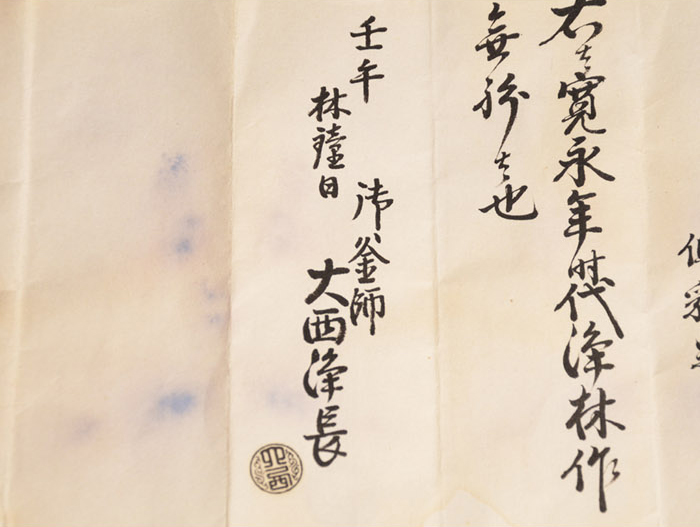 右者寛永年時代浄林作
無紛者也
壬午
林鐘日
御釜師
大西浄長
大西